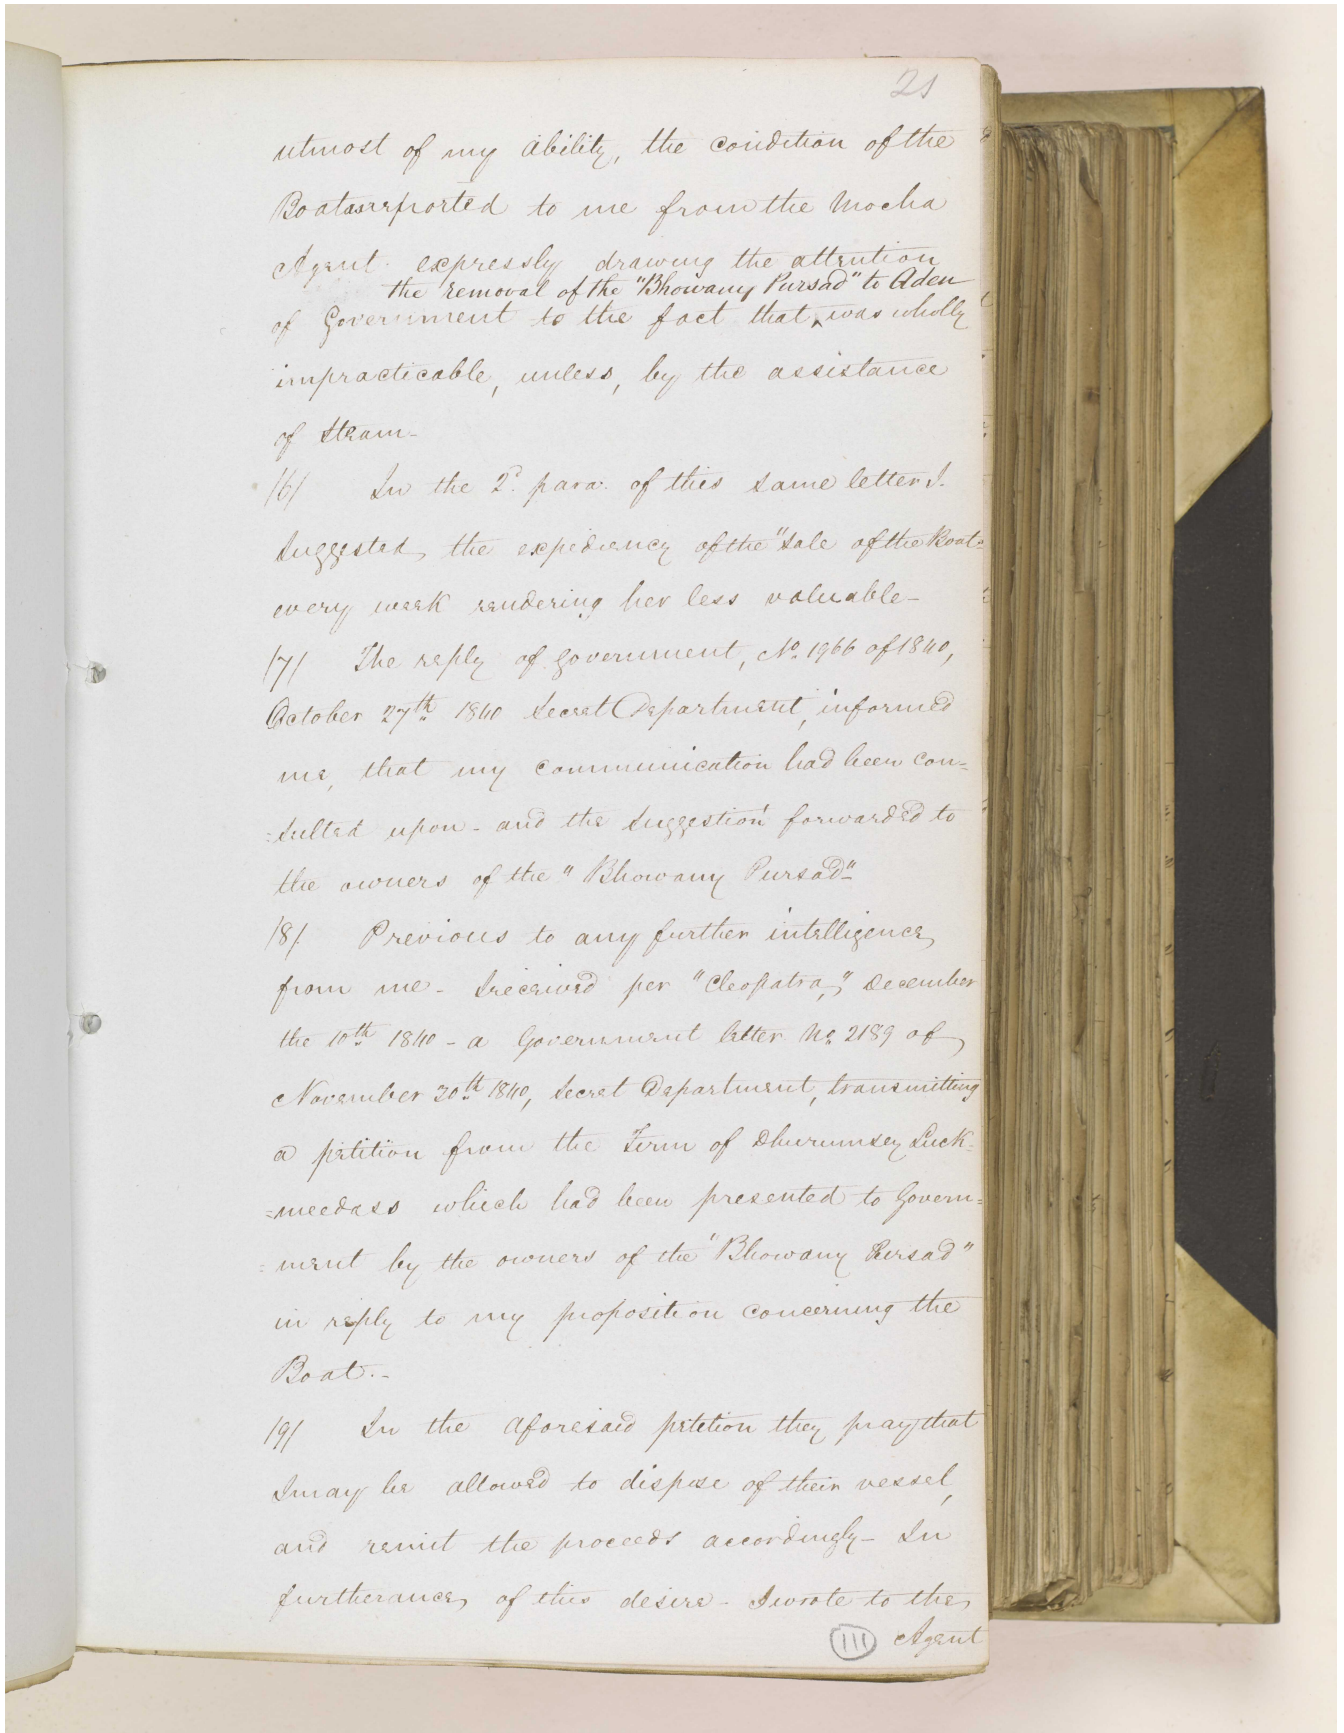 21
utmost of my ability, the condition of the
Boat as reported to me from the Mocha
Agent expressly drawing the attention
the removal of the "Bhowany Pursad" to Aden
of Government to the fact that ‸ was wholly
impracticable, unless, by the assistance
of Steam-
/6/ In the 2d. para. of this same letter I.
suggested, the expediency of the "Sale of the Boat-
every week rendering her less valuable-
/7/ The reply of Government, No. 1966 of 1840,
October 27th 1840 Secret Department, informed
me, that my communication had been con=
=sulted upon - and the suggestion forwarded to
the owners of the "Bhowany Pursad"-
/8/ Previous to any further intelligence
from me - I received per "Cleopatra," December
the 10th 1840 - a Government letter No. 2189 of
November 30th 1840, Secret Department, transmitting
a petition from the Firm of Dhurumsey Luck-
=meedass which had been presented to Govern=
=ment by the owners of the "Bhowany Pursad"
in reply to my proposition concerning the
Boat.-
/9/ In the aforesaid petition they pray that
I may be allowed to dispose of their vessel,
and remit the proceeds accordingly - In
furtherance, of this desire - I wrote to the
111 Agent